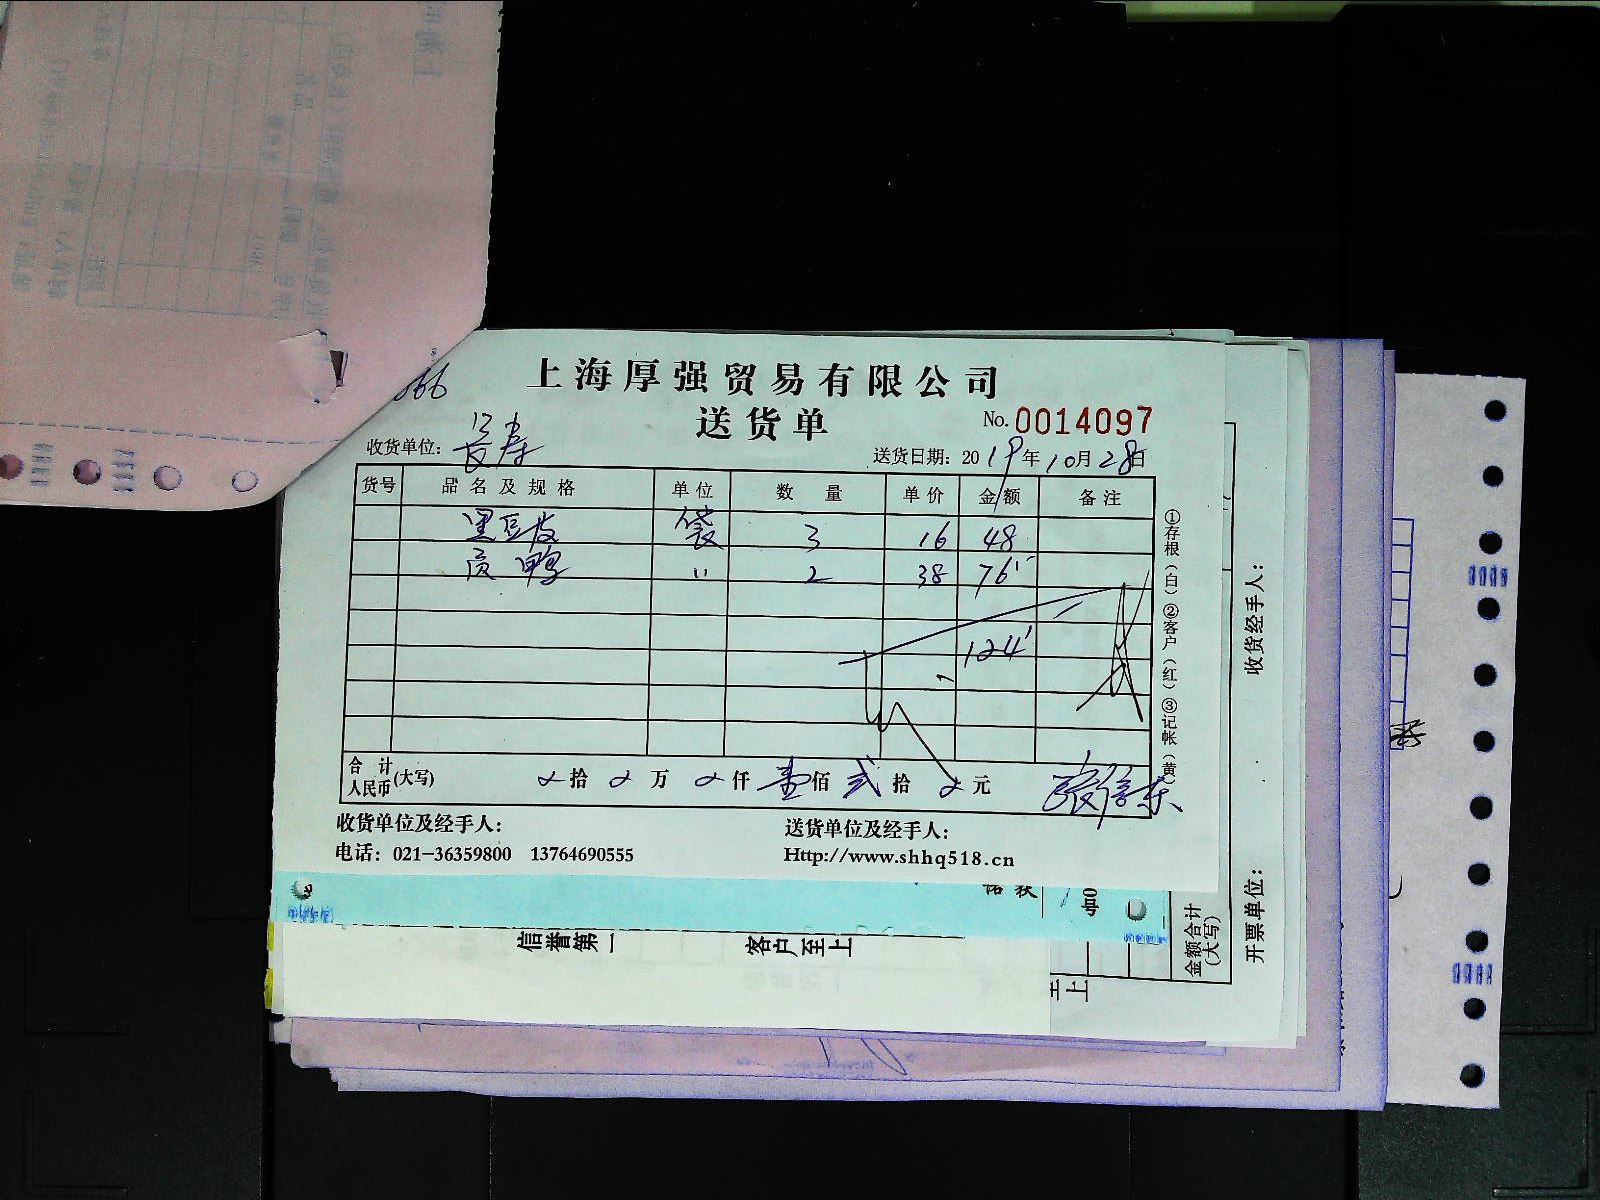 上海厚强贸易有限公司
送货单
No. 0014097
收货单位: 长寿
送货日期: 2019年10月28日
货号 品名及规格 单位 数量 单价 金额 备注
黑豆皮 袋 3 16 48
" 2 38 76
124
合计人民币(大写) 拾 万 仟 壹佰 贰拾 元
①存根(白)②客户(红)③记帐(黄)
收货单位及经手人:
送货单位及经手人:
电话: 021-36359800 13764690555
Http://www.shhq518.cn
信誉第一 客户至上
至上
金额合计
(大写)
收货经手人:
开票单位: